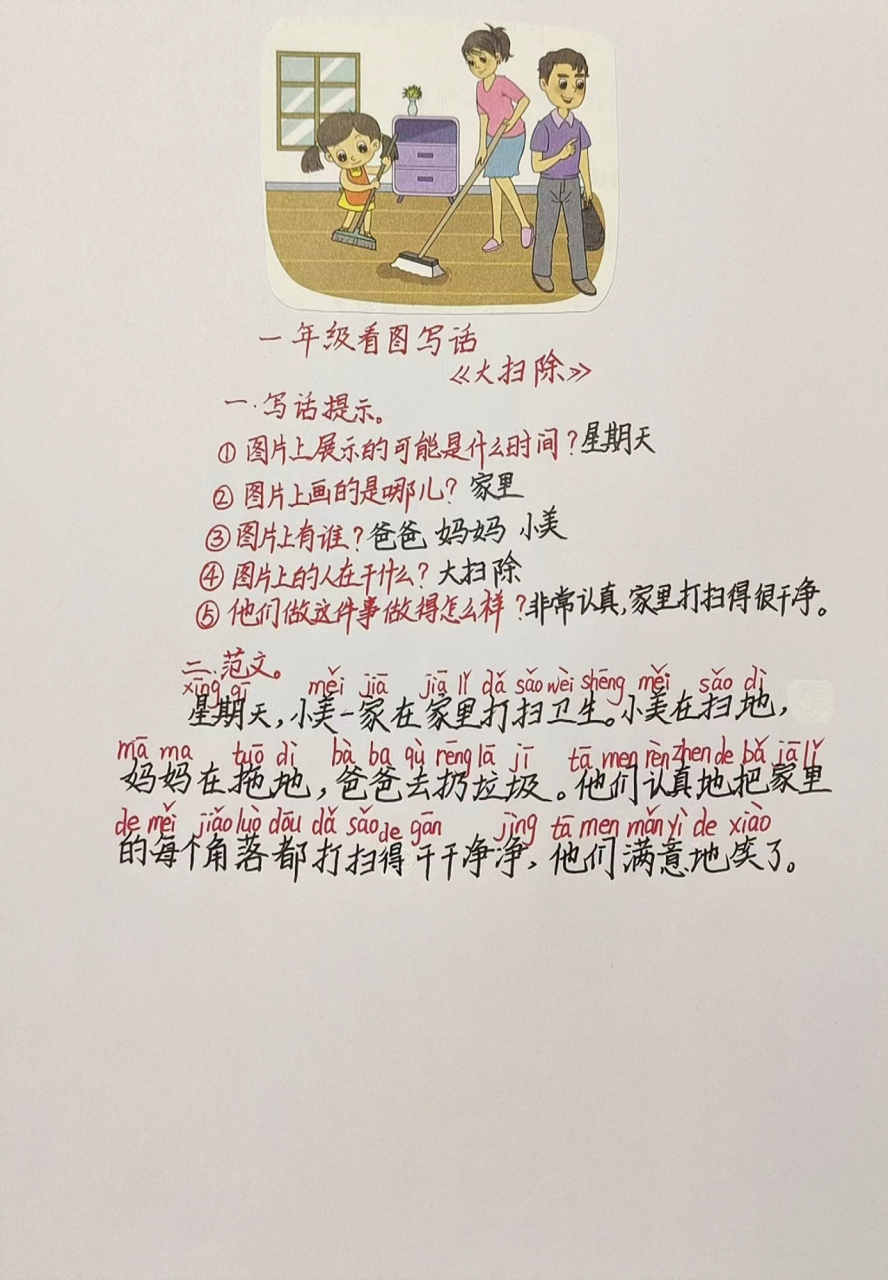 一年级看图写话
《大扫除》
一.写话提示。
①图片上展示的可能是什么时间?星期天
②图片上画的是哪儿?家里
③图片上有谁?爸爸 妈妈 小美
④图片上的人在干什么?大扫除
⑤他们做这件事做得怎么样?非常认真,家里打扫得很干净。
二.范文。
xīng qī měi jiā jiā lǐ dǎ sǎo wèi shēng měi sǎo dì
星期天,小美一家在家里打扫卫生。小美在扫地,
mā ma tuō dì bà ba qù rēng lā jī tā men rèn zhen de bǎ jā lǐ
妈妈在拖地,爸爸去扔垃圾。他们认真地把家里
de měi jiǎo luò dōu dǎ sǎo de gān jìng tā men mǎn yì de xiào
的每个角落都打扫得干干净净,他们满意地笑了。